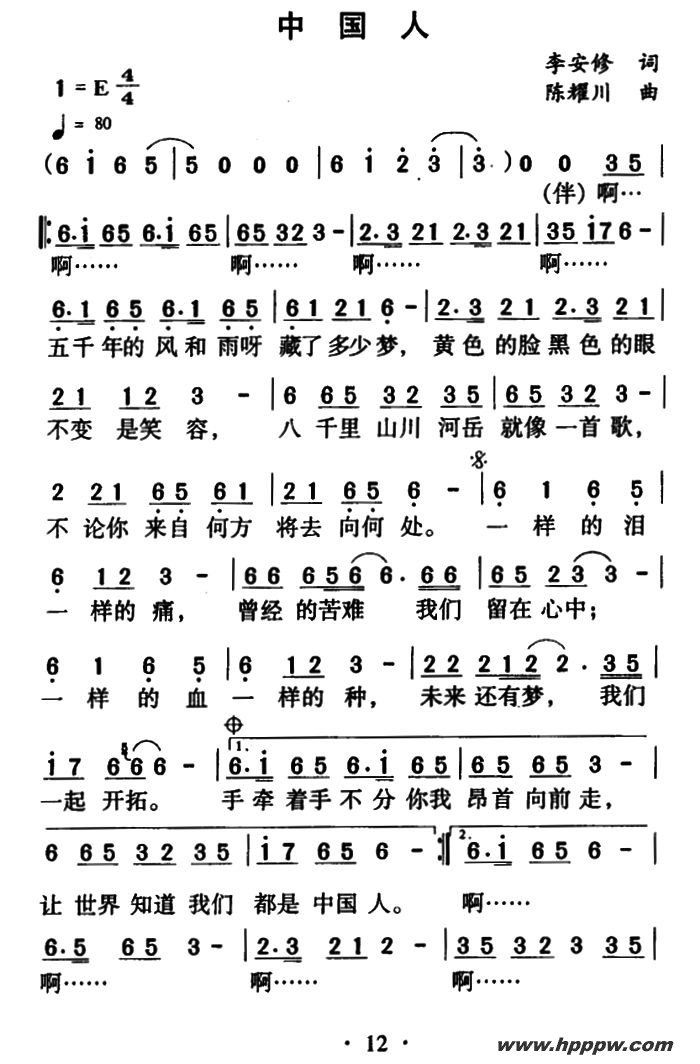 中国人
李安修 词
1=E 4/4
陈耀川 曲
♩= 80
(6 i 6 5 | 5 0 0 0 | 6 i 2 3 | 3·) 0 0 35 |
(伴)啊…
‖: 6·i 65 6·i 65 | 65 32 3 - | 2·3 21 2·3 21 | 35 i7 6 - |
啊…… 啊…… 啊…… 啊……
6·1 65 6·1 65 | 61 21 6 - | 2·3 21 2·3 21 |
五千年的风和雨呀 藏了多少梦, 黄色的脸黑色的眼
21 12 3 - | 6 65 32 35 | 65 32 3 - |
不变 是笑 容, 八 千里 山川 河岳 就像 一首 歌,
2 21 65 61 | 21 65 6 - | 6 1 6 5 |
不 论你 来自 何方 将去 向何 处。 一 样 的 泪
6 12 3 - | 66 6566 6·66 | 65 23 3 - |
一 样的 痛, 曾经 的苦难 我们 留在 心中;
6 1 6 5 | 6 12 3 - | 22 2122 2·35 |
一 样 的 血 一 样的 种, 未来 还有梦, 我们
i7 666 - | 1. 6·i 65 6·i 65 | 65 65 3 - |
一起 开拓。 手牵着手不分你我 昂首向前走,
6 65 32 35 | i7 65 6 - :‖ 2. 6·i 65 6 - |
让 世界 知道 我们 都是 中国 人。 啊……
6·5 65 3 - | 2·3 21 2 - | 35 32 3 35 |
啊…… 啊…… 啊……
· 12 ·
www.hpppw.com